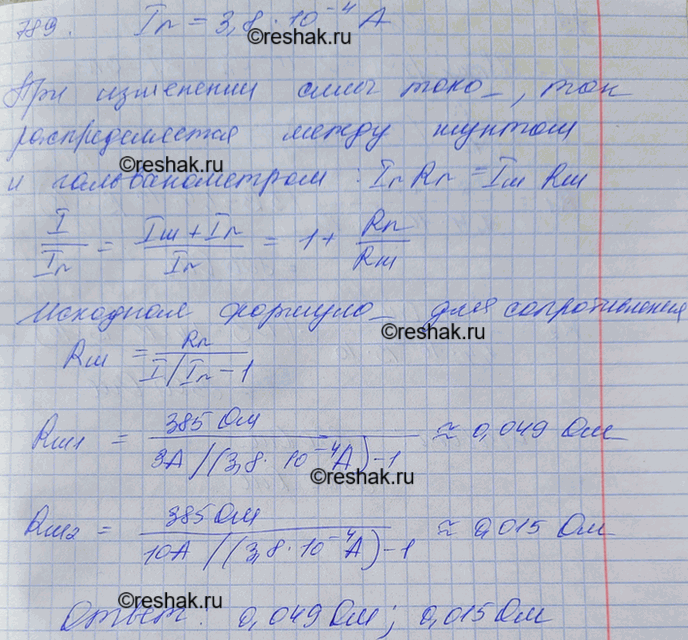 789. Iг = 3,8 · 10⁻⁴ А
©reshak.ru
При изменении силы тока, ток
распределяется между шунтом
©reshak.ru
и гальванометром: Iг Rг = Iш Rш
I/Iг = (Iш + Iг)/Iг = 1 + Rг/Rш
Исходная формула для сопротивления
©reshak.ru
Rш = Rг/(I/Iг - 1)
Rш1 = 385 Ом/(3А/(3,8 · 10⁻⁴А) - 1) ≈ 0,049 Ом
©reshak.ru
Rш2 = 385 Ом/(10А/(3,8 · 10⁻⁴А) - 1) ≈ 0,015 Ом
©reshak.ru
Ответ: 0,049 Ом; 0,015 Ом